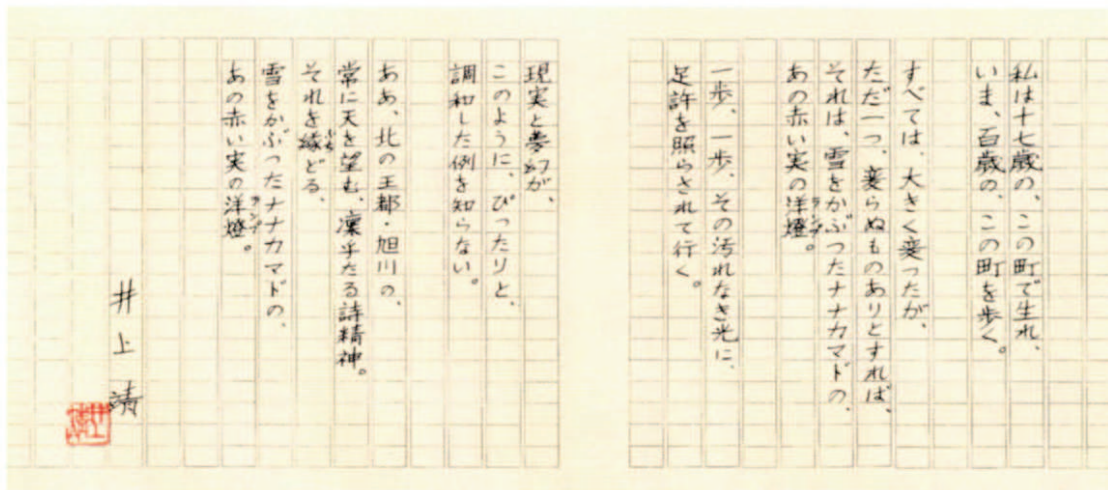 私は十七歳の、この町で生れ、
いま、百歳の、この町を歩く。
すべては、大きく変ったが、
ただ一つ、変らぬものありとすれば、
それは、雪をかぶったナナカマドの、
あの赤い実の洋燈ランプ。
一歩、一歩、その汚れなき光に、
足許を照らされて行く。
現実と夢幻が、
このように、ぴったりと、
調和した例を知らない。
ああ、北の王都・旭川の、
常に天を望む、凛乎たる詩精神。
それを縁ふちどる、
雪をかぶったナナカマドの、
あの赤い実の洋燈ランプ。
井上靖